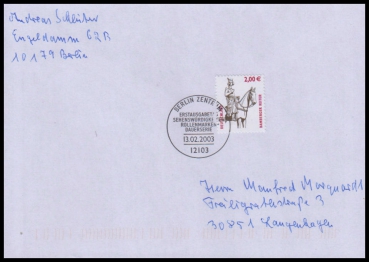 Andreas Schlüter
Engeldamm 62B
10179 Berlin
2,00 €
BAMBERGER REITER
BERLIN ZENTR
ERSTAUSGABE
SEHENSWÜRDIGK
ROLLENMARKEN
DAUERSERIE
13.02.2003
12103
Herrn Manfred Marquardt
Freiligrathstraße 3
30851 Langenhagen